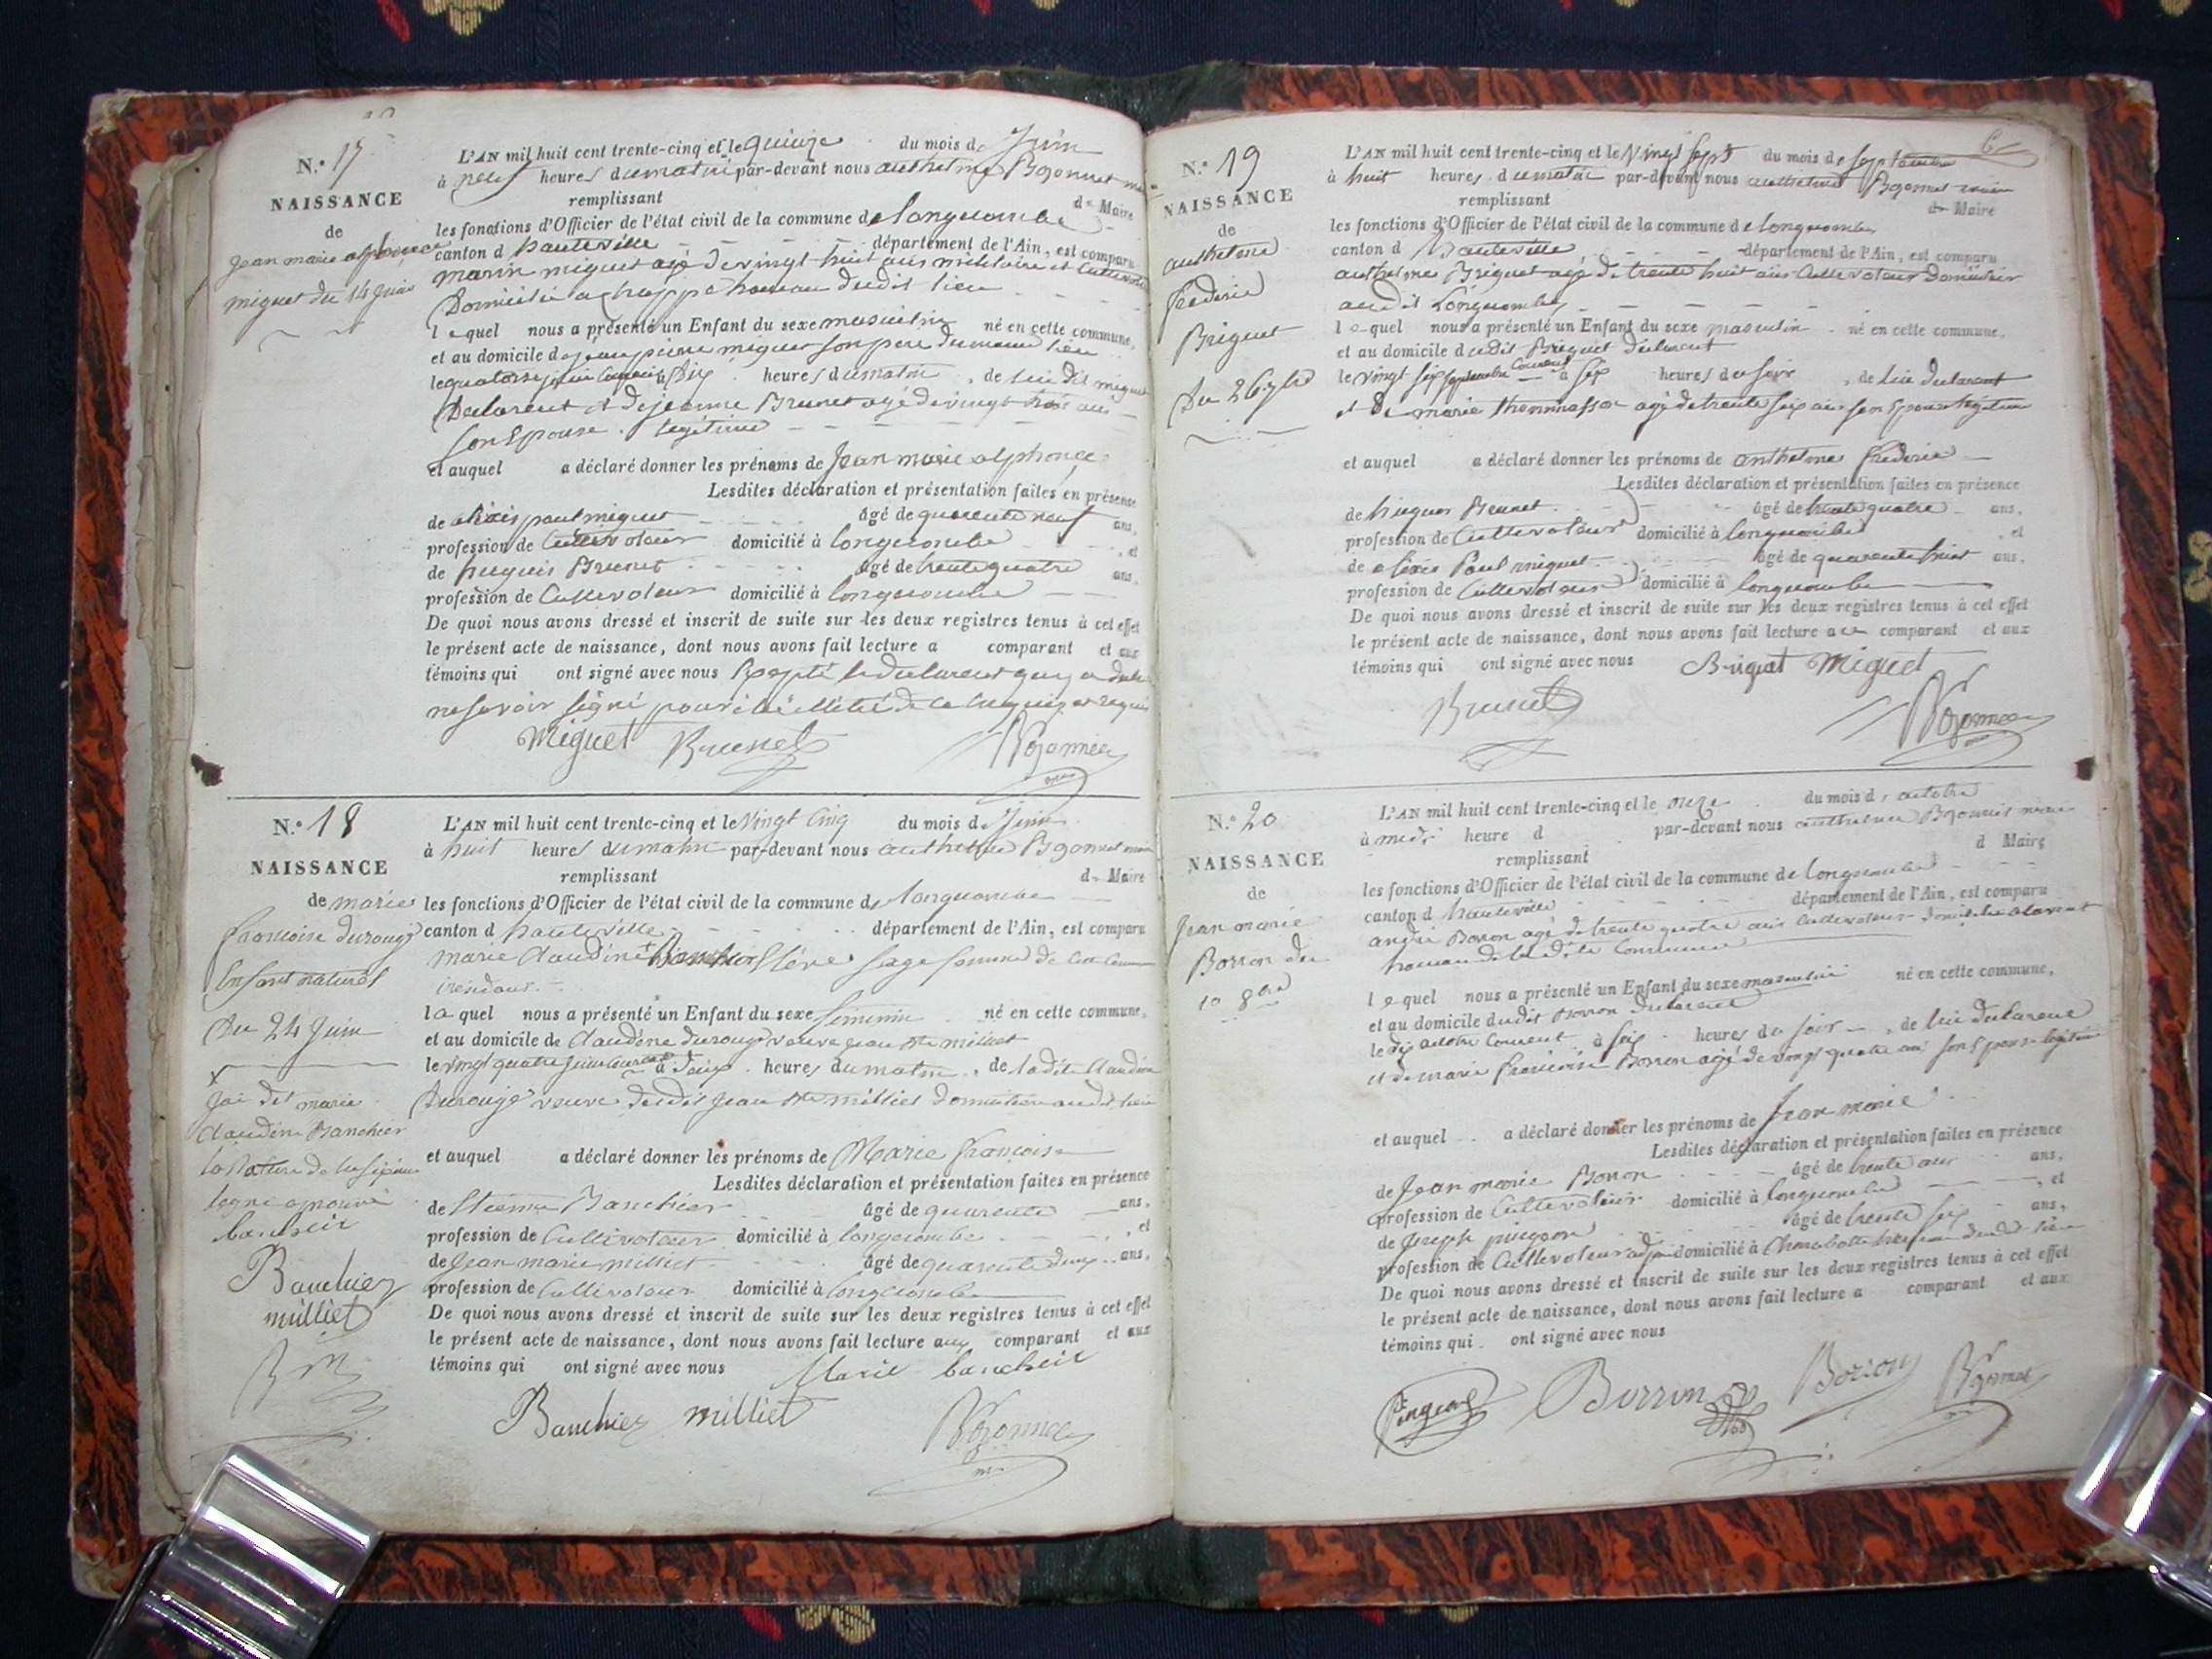 N.° 17
NAISSANCE
de
jean marie alphonce
miguet du 14 juin
L'AN mil huit cent trente-cinq et le quinze du mois de Juin
à neuf heures du matin par-devant nous anthelme Bozonnet
remplissant de Maire
les fonctions d'Officier de l'état civil de la commune de longecombe
canton d hauteville département de l'Ain, est comparu
marin miguet agé de vingt huit ans militaire et
Domicilié a hameau dudit lieu
lequel nous a présenté un Enfant du sexe masculin né en cette commune,
et au domicile de jean pierre miguet son pere du meme lieu
le quatorze juin courant à six heures du matin, de lui dit miguet
Declarent et de jeanne Brunet agé de vingt trois ans
son Epouse legitime
et auquel a déclaré donner les prénoms de Jean marie alphonce
Lesdites déclaration et présentation faites en présence
de alexis paul miguet âgé de quarente neuf ans,
profession de Cultivateur domicilié à longecombe, et
de hugues Brunet âgé de trente quatre ans
profession de Cultivateur domicilié à longecombe
De quoi nous avons dressé et inscrit de suite sur les deux registres tenus à cet effet
le présent acte de naissance, dont nous avons fait lecture a comparant et aux
témoins qui ont signé avec nous Excepté le declarent
ne savoir signé pour
Miguet Brunet Bozonnet
N.° 18
NAISSANCE
de marie
francoise durouge
Enfant naturel
Du 24 Juin
J'ai dit marie
Claudine Banchier
bancheir
Banchier
milliet
L'AN mil huit cent trente-cinq et le Vingt Cinq du mois de Juin
à huit heures du matin par-devant nous anthelme Bozonnet
remplissant de Maire
les fonctions d'Officier de l'état civil de la commune de longecombe
canton d hauteville département de l'Ain, est comparu
marie Claudine sage femme de
laquel nous a présenté un Enfant du sexe feminin né en cette commune,
et au domicile de Claudine durouge veuve jean milliet
le vingt quatre juin courant à heures du matin, de ladite Claudine
Durouge veuve dudit Jean milliet
et auquel a déclaré donner les prénoms de Marie francoise
Lesdites déclaration et présentation faites en présence
de Etienne Banchier âgé de quarente ans,
profession de Cultivateur domicilié à longecombe, et
de Jean marie milliet âgé de quarente deux ans,
profession de Cultivateur domicilié à longecombe
De quoi nous avons dressé et inscrit de suite sur les deux registres tenus à cet effet
le présent acte de naissance, dont nous avons fait lecture aux comparant et aux
témoins qui ont signé avec nous Marie bancheir
Banchier milliet Bozonnet
N.° 19
NAISSANCE
de
anthelme
frederic
Briguet
Du 26 7bre
L'AN mil huit cent trente-cinq et le Vingt sept du mois de septembre
à huit heures du matin par-devant nous anthelme Bozonnet maire
remplissant de Maire
les fonctions d'Officier de l'état civil de la commune de longecombe
canton d hauteville département de l'Ain, est comparu
anthelme Briguet agé de trente huit ans Cultivateur Domicilié
audit Longecombe
lequel nous a présenté un Enfant du sexe masculin né en cette commune,
et au domicile dudit Briguet declarent
le vingt six septembre courent à six heures du soir, de lui declarent
et de marie thommasset agé de trente six ans son Epouse legitime
et auquel a déclaré donner les prénoms de anthelme frederic
Lesdites déclaration et présentation faites en présence
de hugues Brunet âgé de trente quatre ans,
profession de Cultivateur domicilié à longecombe, et
de alexis Paul miguet âgé de quarente huit ans,
profession de Cultivateur domicilié à longecombe
De quoi nous avons dressé et inscrit de suite sur les deux registres tenus à cet effet
le présent acte de naissance, dont nous avons fait lecture au comparant et aux
témoins qui ont signé avec nous Briguet Miguet
Brunet Bozonnet
N.° 20
NAISSANCE
de
Jean marie
Borron du
10 8bre
L'AN mil huit cent trente-cinq et le onze du mois d'octobre
à midi heure d par-devant nous anthelme Bozonnet maire
remplissant d Maire
les fonctions d'Officier de l'état civil de la commune de longecombe
canton d hauteville département de l'Ain, est comparu
andré Borron agé de trente quatre ans Cultivateur domicilié
hameau de ladite Commune
lequel nous a présenté un Enfant du sexe masculin né en cette commune,
et au domicile dudit Borron declarent
le dix octobre courent à six heures du soir, de lui declarent
et de marie francoise Borron agé de vingt quatre ans son Epouse legitime
et auquel a déclaré donner les prénoms de Jean marie
Lesdites déclaration et présentation faites en présence
de Jean marie Borron âgé de trente ans,
profession de Cultivateur domicilié à longecombe, et
de Joseph pingeon âgé de trente six ans,
profession de Cultivateur domicilié à hameau dudit lieu
De quoi nous avons dressé et inscrit de suite sur les deux registres tenus à cet effet
le présent acte de naissance, dont nous avons fait lecture a comparant et aux
témoins qui ont signé avec nous
Pingeon Borron Borron Bozonnet